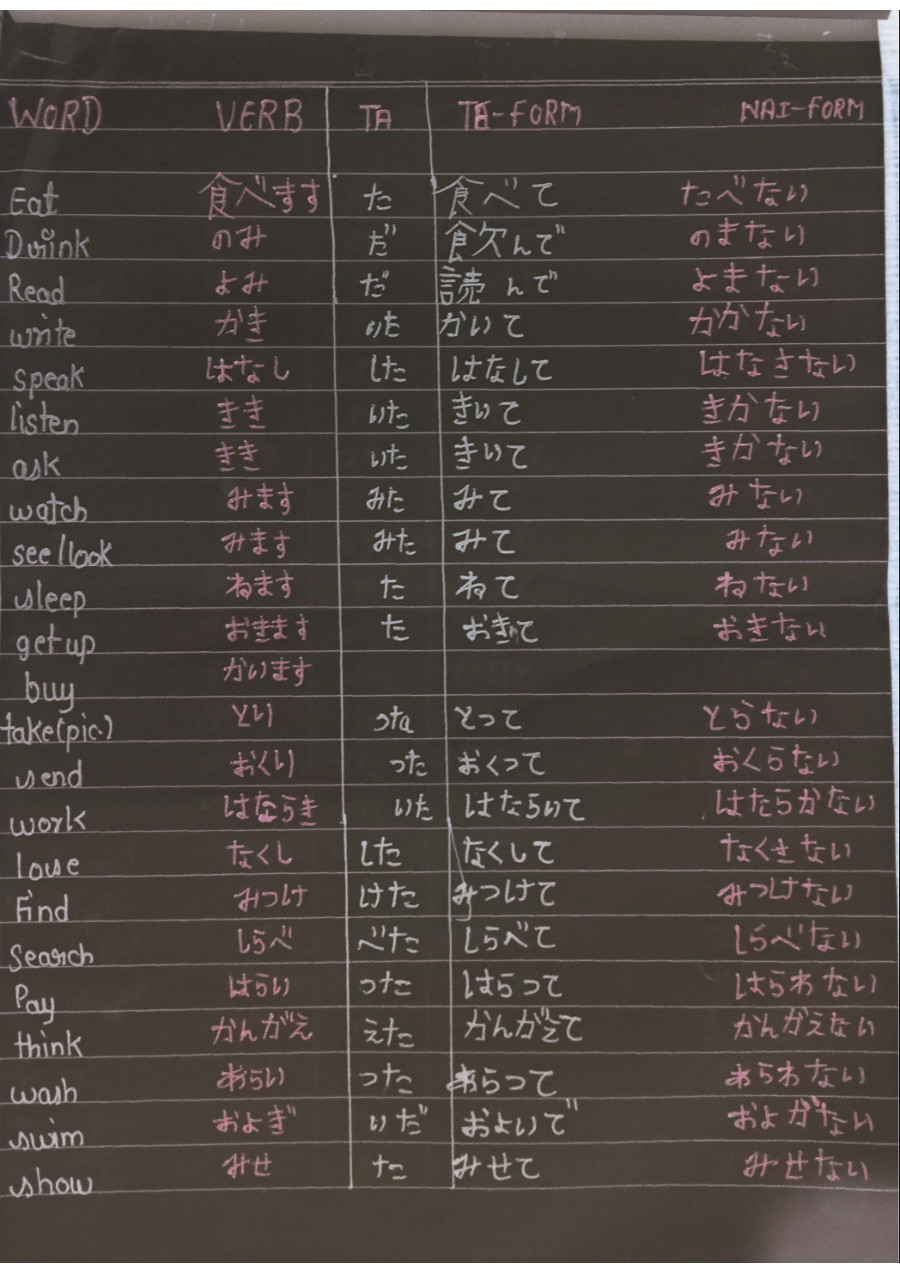 WORD VERB TA TE-FORM NAI-FORM
Eat 食べます た 食べて たべない
Drink のみ だ 飲んで のまない
Read よみ だ 読んで よまない
write かき いた かいて かかない
speak はなし した はなして はなさない
listen きき いた きいて きかない
ask きき いた きいて きかない
watch みます みた みて みない
see/look みます みた みて みない
sleep ねます た ねて ねない
get up おきます た おきて おきない
buy かいます
take(pic.) とり った とって とらない
send おくり った おくって おくらない
work はならき いた はならいて はたらかない
louse なくし した なくして なくさない
Find みつけ けた みつけて みつけない
Search しらべ べた しらべて しらべない
Pay はらい った はらって はらわない
think かんがえ えた かんがえて かんがえない
wash あらい った あらって あらわない
swim およぎ いだ およいで およがない
show みせ た みせて みせない